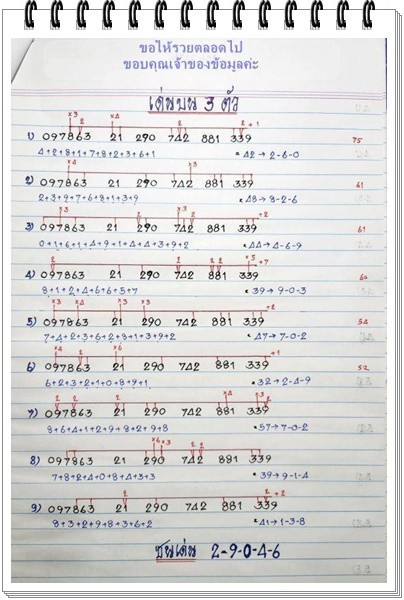 ขอให้รวยตลอดไป
ขอบคุณเจ้าของข้อมูลค่ะ
เด่นบน 3 ตัว
x3 2 x4 2 2 +1
1) 097863 21 290 742 881 339 75
4+2+8+1+7+8+2+3+6+1 = 42→2-6-0
x4
2) 097863 21 290 742 881 339 61
2+3+9+7+6+8+1+3+9 = 48→8-2-6
x3 x3 +2
3) 097863 21 290 742 881 339 61
0+1+6+1+4+9+1+4+4+3+9+2 = 44→4-6-9
2 2 2 2 x5 +7
4) 097863 21 290 742 881 339 60
8+1+2+4+6+6+5+7 = 39→9-0-3
x3 x4 x3 x3 +2
5) 097863 21 290 742 881 339 54
7+4+2+3+6+2+8+1+3+9+2 = 47→7-0-2
x4 2 x6 +1
6) 097863 21 290 742 881 339 52
6+2+3+2+1+0+8+9+1 = 32→2-4-9
2 2 2 x4 x3 2
7) 097863 21 290 742 881 339
8+6+4+1+2+9+8+2+9+8 = 57→7-0-2
x6 x3 2 2
8) 097863 21 290 742 881 339
7+8+2+4+0+8+4+3+3 = 39→9-1-4
2 2 +2
9) 097863 21 290 742 881 339
8+3+2+9+8+3+6+2 = 41→1-3-8
ชนเด่น 2-9-0-4-6